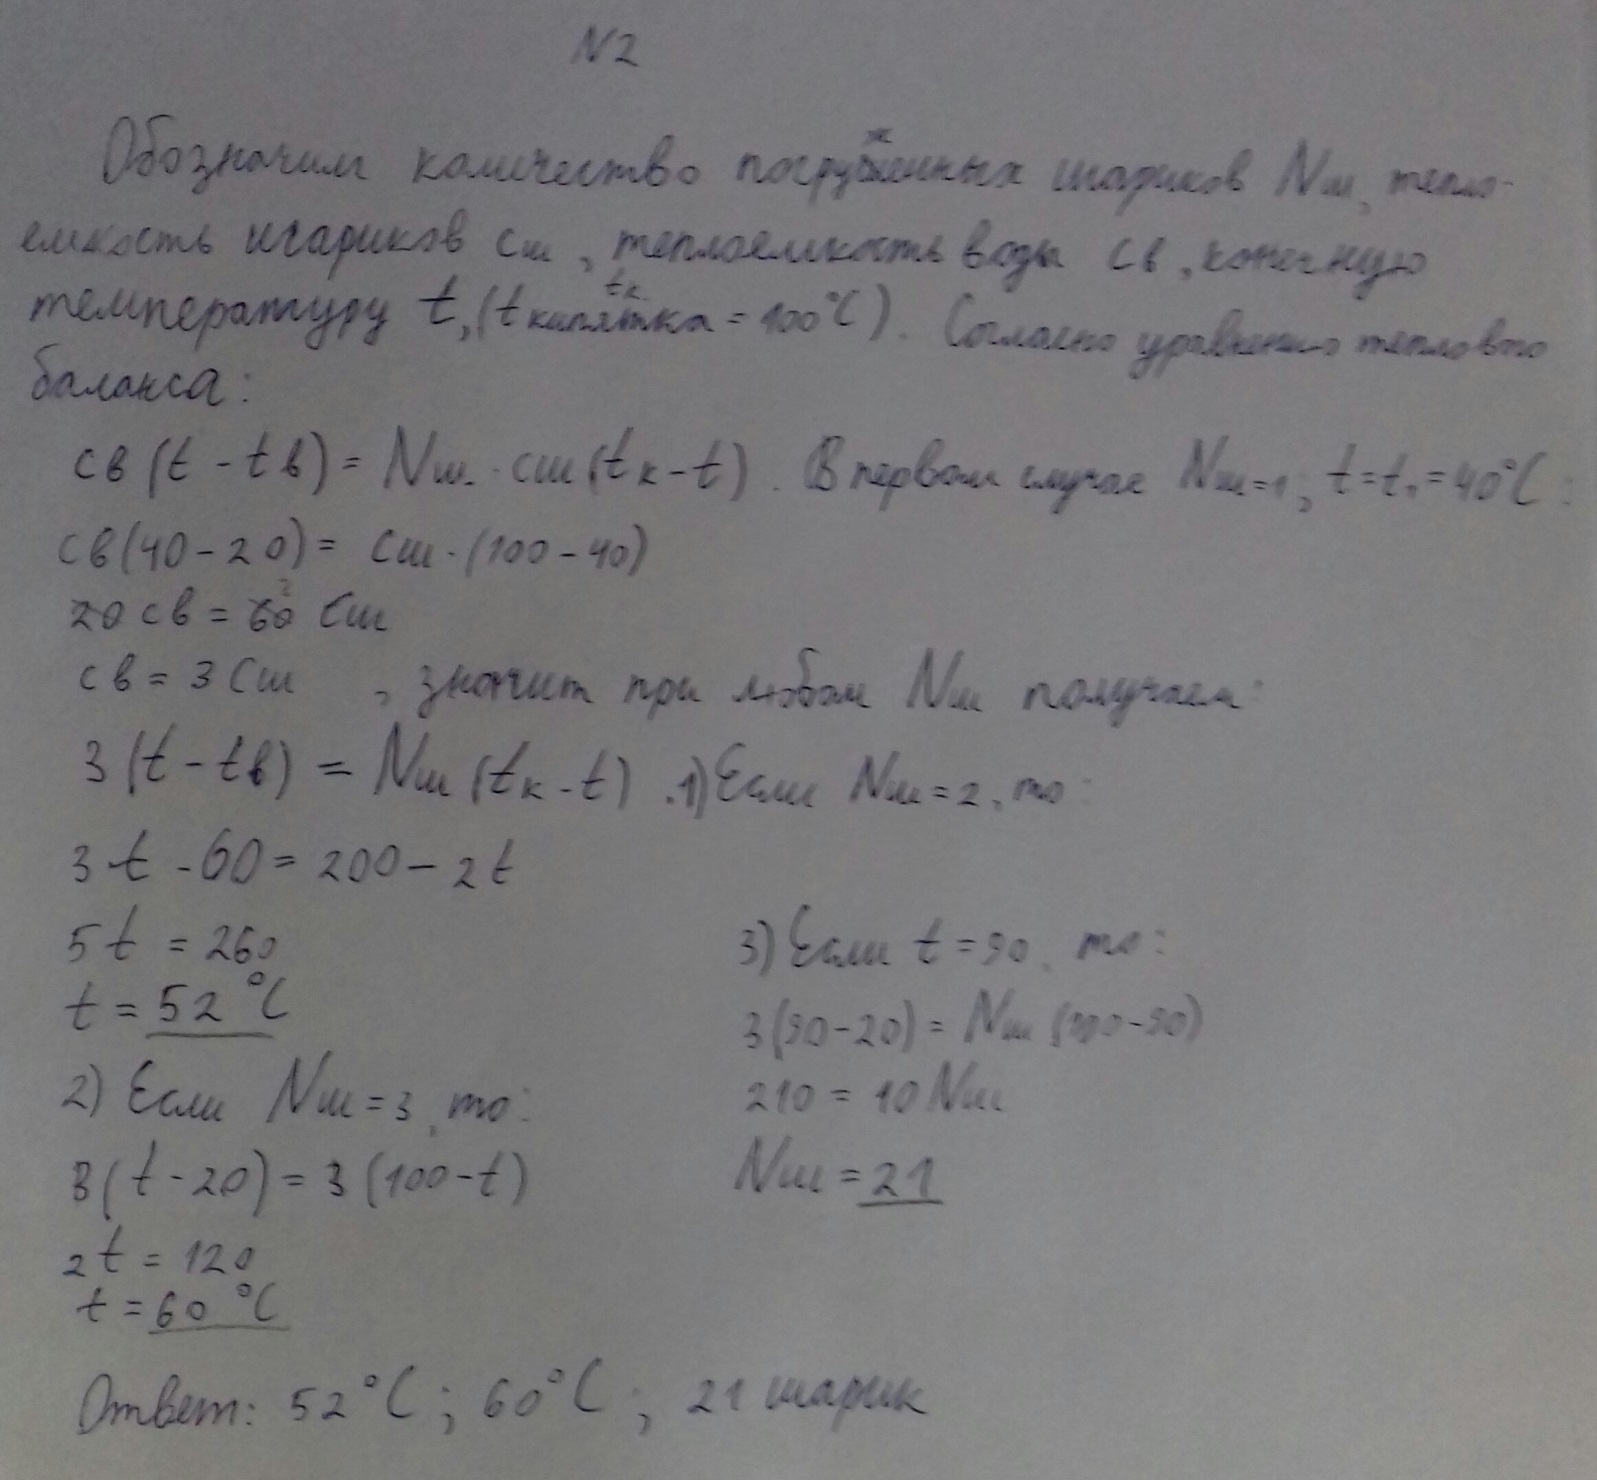 N2
Обозначим количество погруженных шариков Nш, тепло-
емкость шариков сш, теплоемкость воды св, конечную
температуру t, (t кипятка tк = 100°C). Согласно уравнению теплового
баланса:
св(t - tв) = Nш · сш(tк - t). В первом случае Nш=1, t=t₁=40°C:
св(40-20) = сш·(100-40)
20 св = 60 сш
св = 3 сш , значит при любом Nш получаем:
3(t - tв) = Nш(tк - t) . 1) Если Nш=2, то:
3t - 60 = 200 - 2t
5t = 260
t = 52 °C
2) Если Nш=3, то:
3(t-20) = 3(100-t)
2t = 120
t = 60 °C
3) Если t=90, то:
3(90-20) = Nш(100-90)
210 = 10 Nш
Nш = 21
Ответ: 52°C; 60°C; 21 шарик